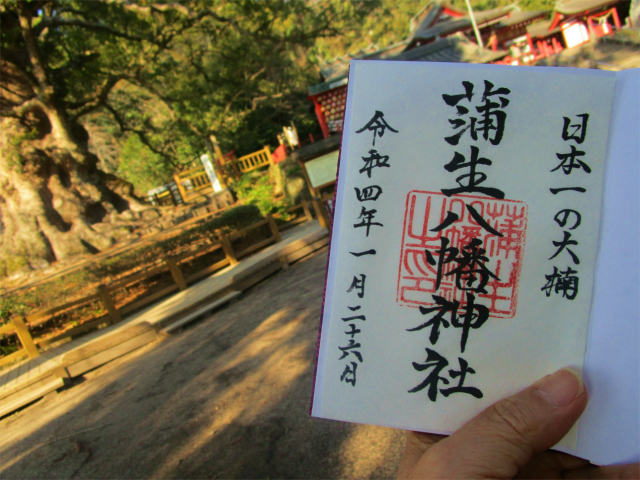 日本一の大楠
蒲生八幡神社
令和四年一月二十六日
蒲生
八幡神社
之印